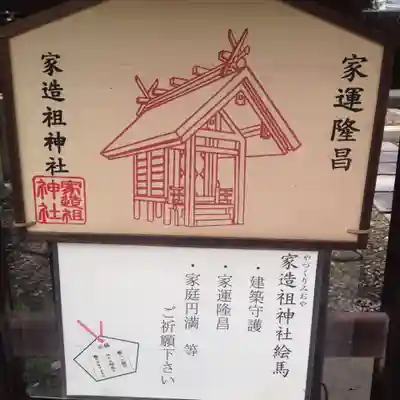 家運隆昌
家造祖神社
家造祖
神社
家造祖神社絵馬
やづくりみおや
・建築守護
・家運隆昌
・家庭円満 等
ご祈願下さい